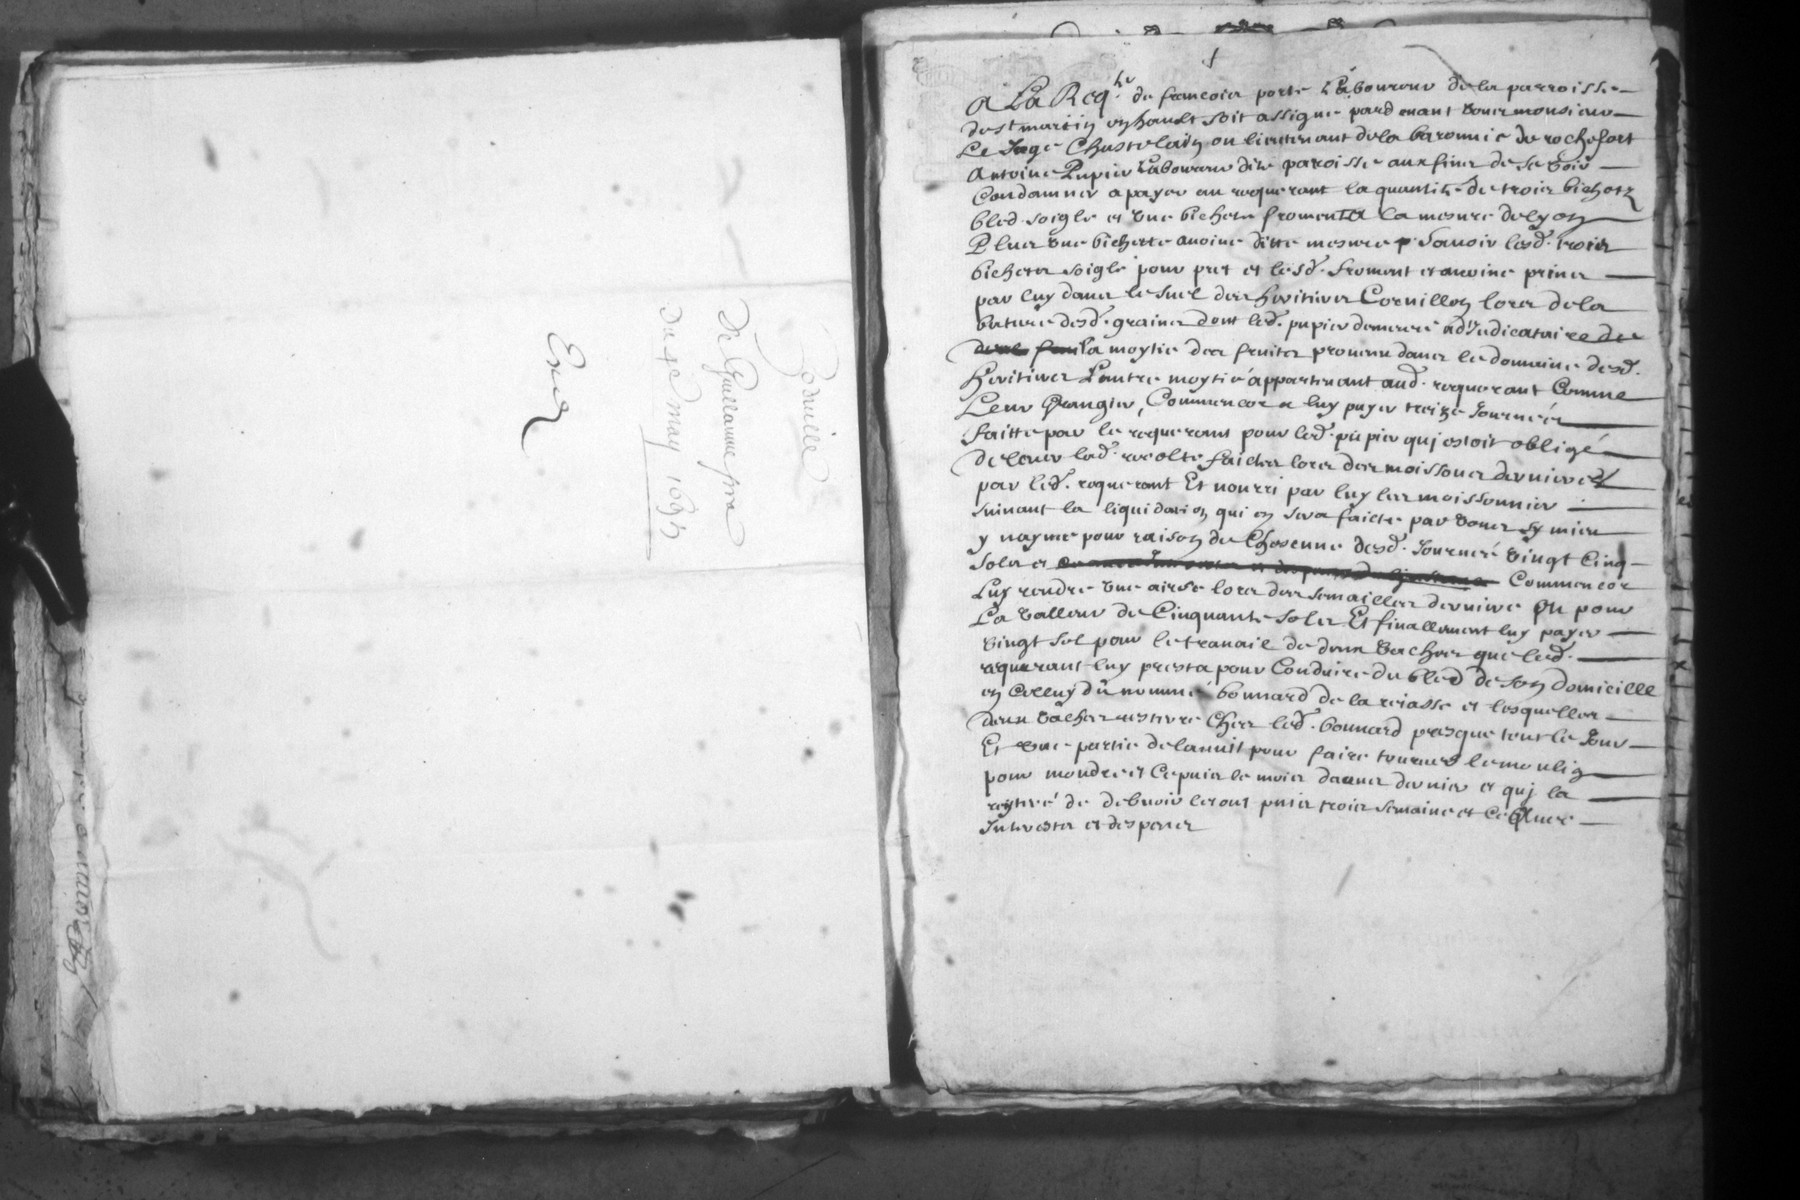 Pour ville
De Guillaume pra
Du 5e may 1693
Enq
A La Reqte de francois porte Laboureur de la parroisse
de st martin en hault soit assigne pardevant vous monsieur
Le Juge Chastelain ou lieutenant de la baronnie de rochefort
Antoine Pupier Laboureur dite paroisse aux fins de se voir
Condamner a payer au requerant la quantité de trois bichetz
bled soigle et une bichette froment a la mesure de lyon
Plus une bichette avoine ditte mesure Savoir lesd. trois
bichets soigle pour pret et lesd. froment et avoine prises
par luy dans le suel des heritiers Cornillon lors de la
bature desd. graines dont led. pupier demeure adjudicataire de
la moytie des fruits provenu dans le domaine desd.
heritiers L'autre moytié appartenant aud. requerant Comme
Leur Grangier, Comm'encor a luy payer treize Journées
faitte par le requerant pour led. pupier qui estoit obligé
de lever lad. recolte faictes lors des moissons dernieres
par led. requerant Et nourri par luy les moissonnier
suivant la liquidation qui en sera faicte par vous sy mieux
n'ayme pour raison de Chascune desd. Journeé vingt Cinq
solz et Comm'encor
Luy rendre une airse lors des semailles derniere Ou pour
La valleur de Cinquante solz Et finallement luy payer
vingt sol pour le travail de deux vaches que led.
requerant luy presta pour Conduire du bled de son domicille
en celluy du nommé bonnard de la reiasse et lesquelles
deux vaches restere Ches led. bonnard presque tout le Jour
Et une partie de la nuit pour faire tourner le moulin
pour moudre et Cepuis le mois daoust dernier et quj la
reytiré de debvoir le tout puis trois semaine et Ce Avec
Interestz et despens